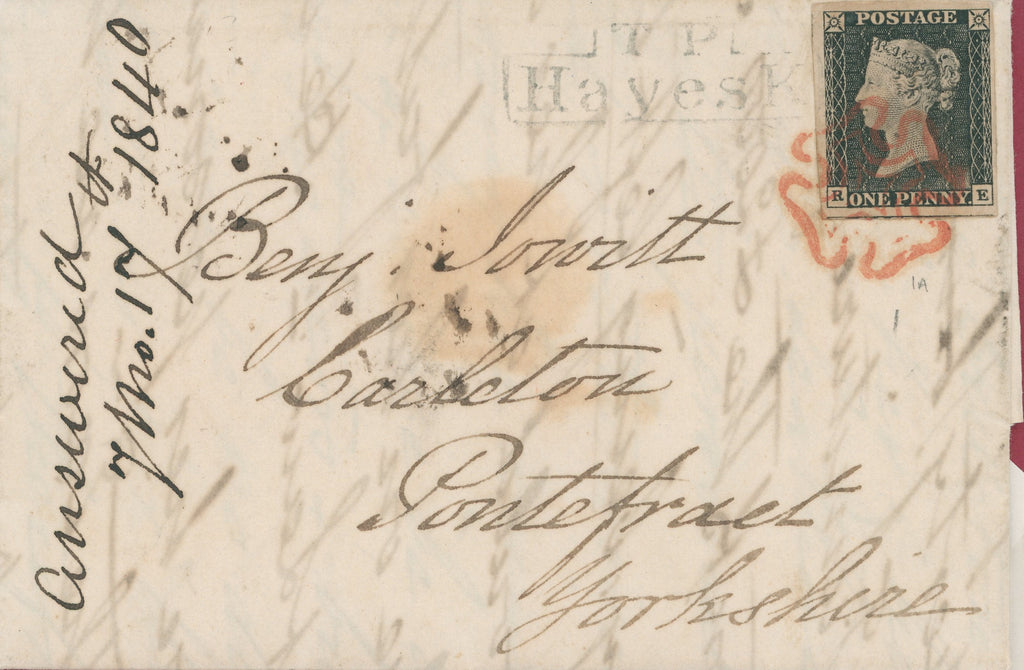 T P
Hayes K
POSTAGE
R ONE PENNY. E
Benj. Jowitt
Carleton
Pontefract
Yorkshire
answered
7 Mo. 17th 1840
1A